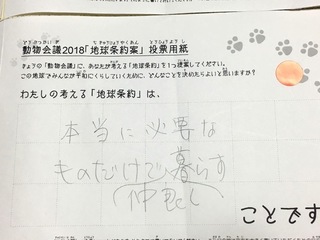 動物会議2018「地球条約案」投票用紙
きょうの「動物会議」に、あなたが考える「地球条約」を1つ提案してください。
この地球でみんなが平和にくらしていくために、どんなことを決めたらよいと思いますか?
わたしの考える「地球条約」は、
本当に必要な
ものだけで暮らす
仲良く
ことです